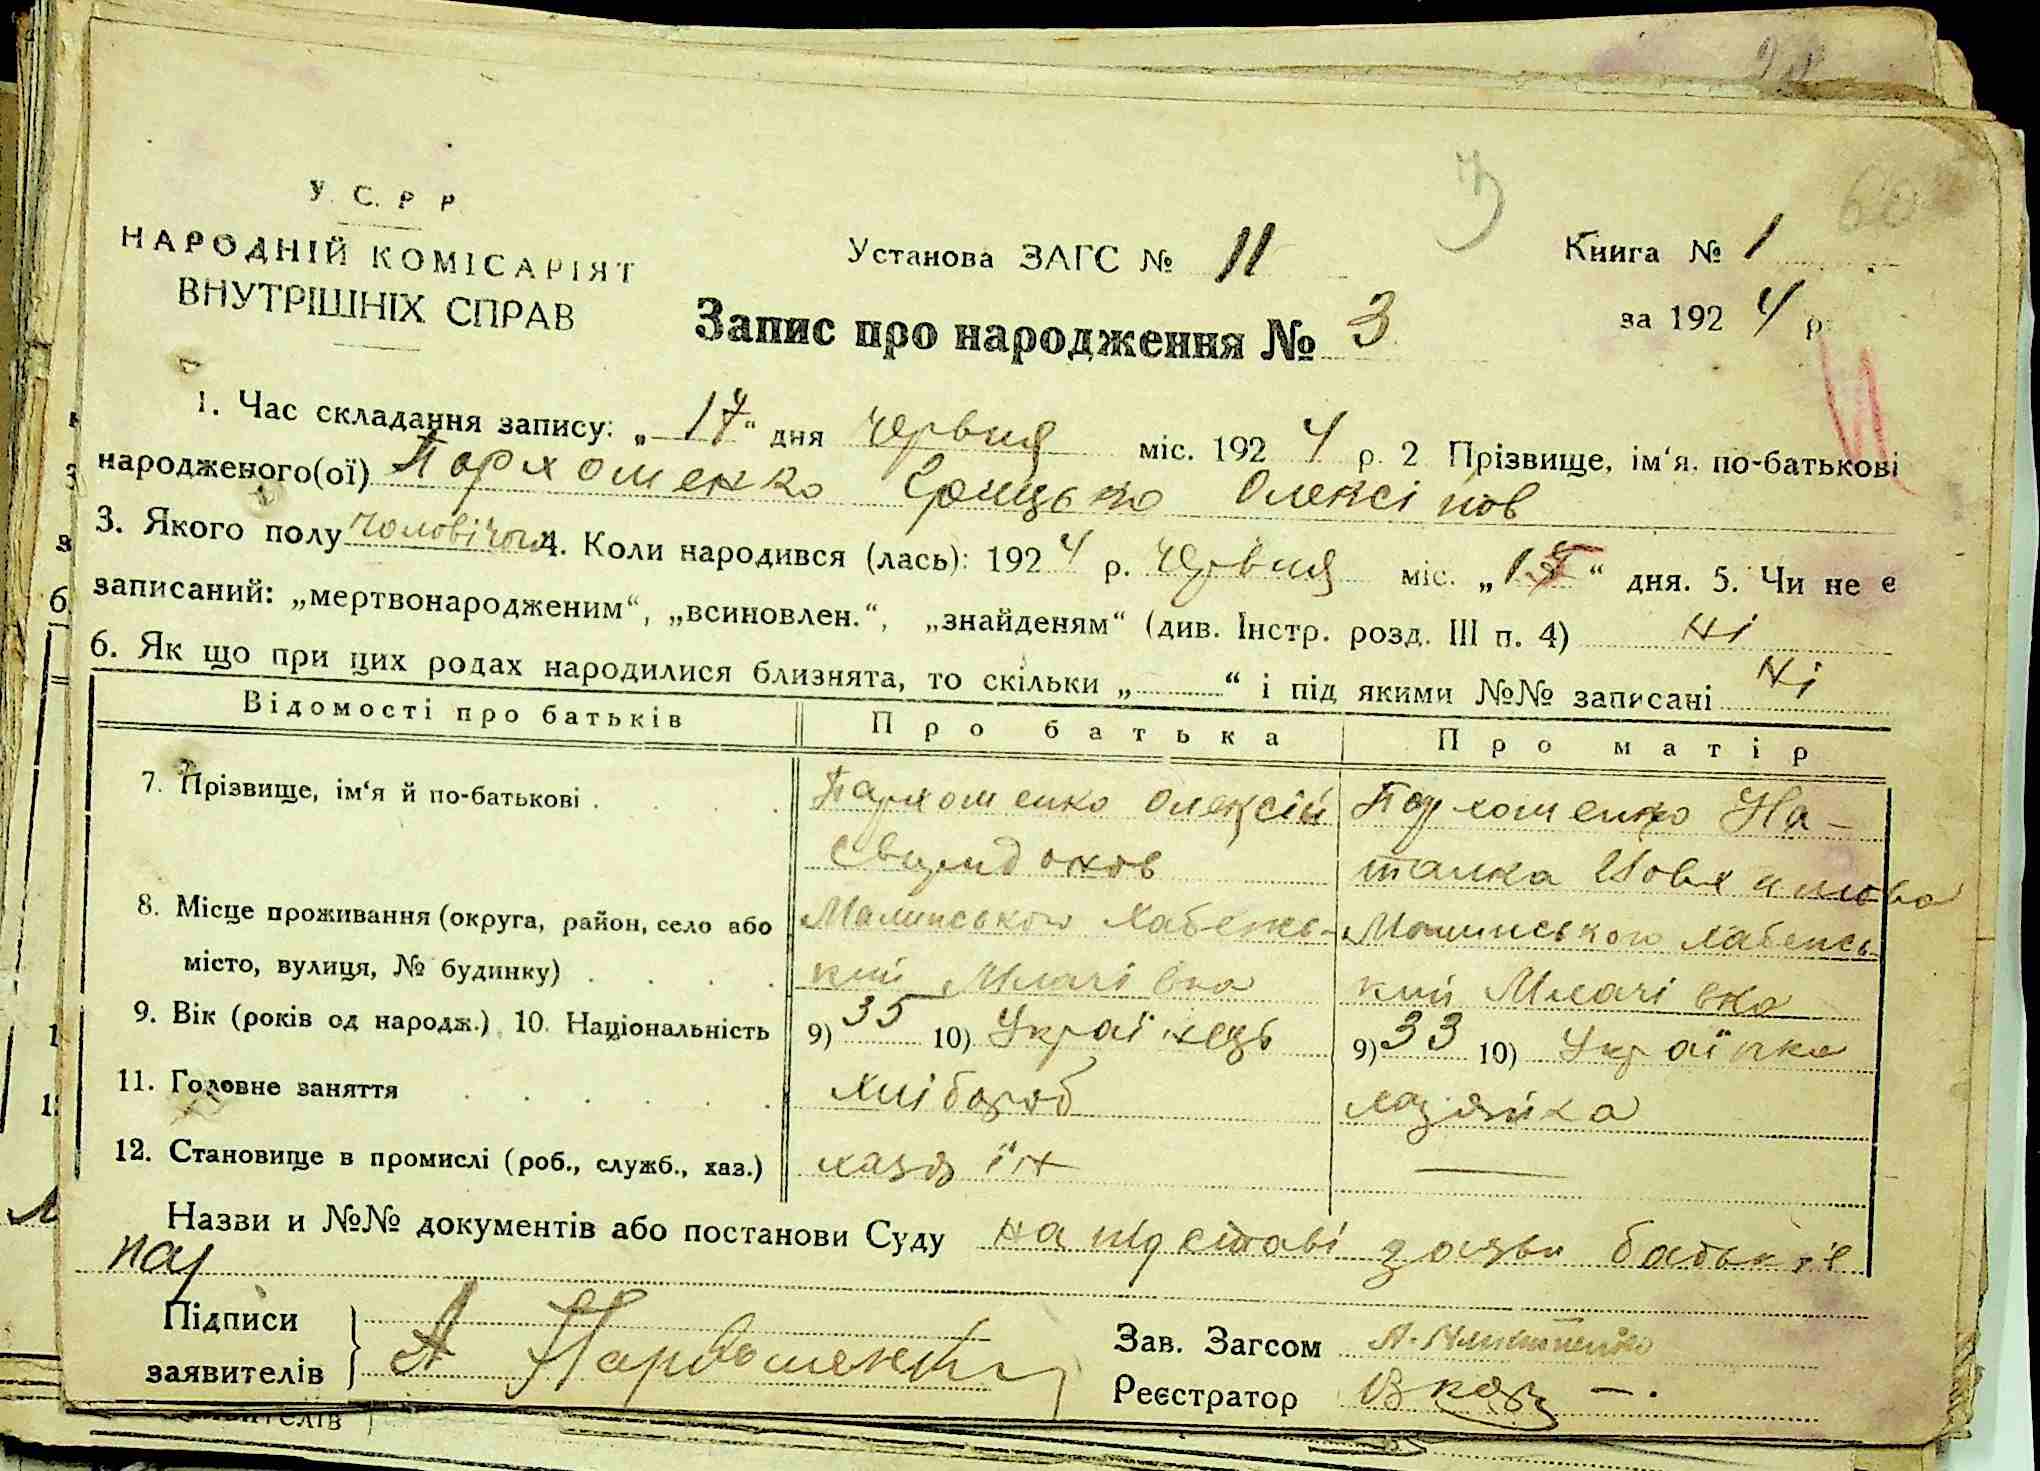 У. С. Р. Р.
НАРОДНІЙ КОМІСАРІЯТ
ВНУТРІШНІХ СПРАВ
Установа ЗАГС № 11
Книга № 1
за 1924 р.
Запис про народження № 3
1. Час складання запису: „17“ дня червня міс. 1924 р. 2 Прізвище, ім‘я, по-батькові
народженого(ої) Пархоменко Грицько Олексійов
3. Якого полу чоловічого 4. Коли народився (лась): 1924 р. червня міс. „ “ дня. 5. Чи не є
записаний: „мертвонародженим“, „всиновлен.“, „знайденям“ (див. Інстр. розд. III п. 4) Ні
6. Як що при цих родах народилися близнята, то скільки „ “ і під якими №№ записані Ні
Відомості про батьків Про батька Про матір
7. Прізвище, ім‘я й по-батькові . . . . Пархоменко Олексій Пархоменко На-
талка
8. Місце проживання (округа, район, село або Малинською Хабенсь- Малинською Хабенсь
місто, вулиця, № будинку) . . . . кий Млачівка кий Млачівка
9. Вік (років од народж.) 10. Національність 9) 35 10) Українець 9) 33 10) Українка
11. Головне заняття . . . . . . хлібороб хазяйка
12. Становище в промислі (роб., служб., хаз.) хазяїн —
Назви и №№ документів або постанови Суду на підставі заяви батька
Підписи
заявителів А Пархоменко
Зав. Загсом
Реєстратор